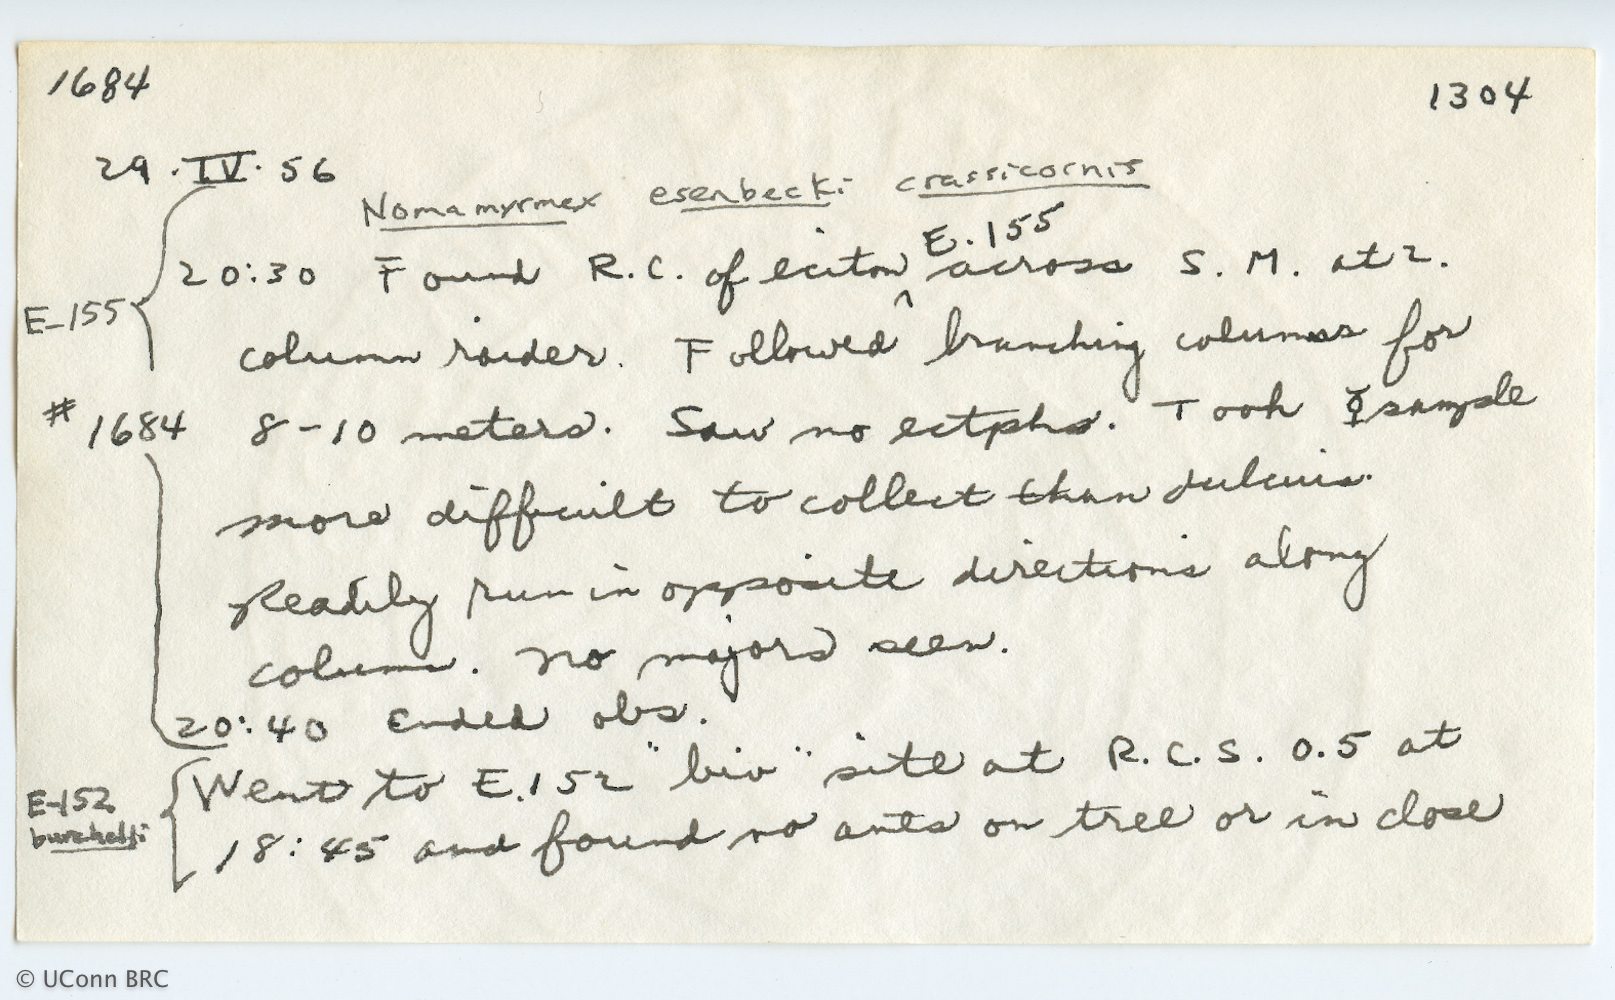 1684 1304
29.IV.56
Nomamyrmex esenbecki crassicornis
20:30 Found R.C. of eciton ^ E.155 across S. M. at 2.
E-155
column raider. Followed branching columns for
# 1684 8-10 meters. Saw no ectphs. Took ☿ sample
more difficult to collect than dulcius.
Readily run in opposite directions along
column. No majors seen.
20:40 Ended obs.
Went to E.152 "biv" site at R.C.S. 0.5 at
E-152
burchelli
18:45 and found no ants on tree or in close
© UConn BRC